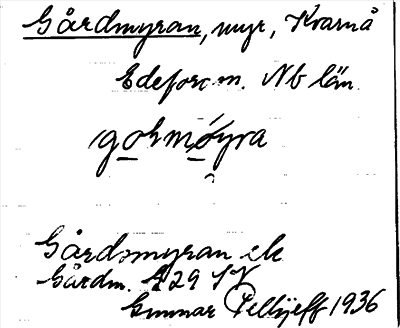 Gårdmyran, myr, Kvarnå
Edefors sn. Nb län
gohmöyra
Gårdsmyran ek
Gårdm. A 29 SV
Gunnar Pellijeff 1936